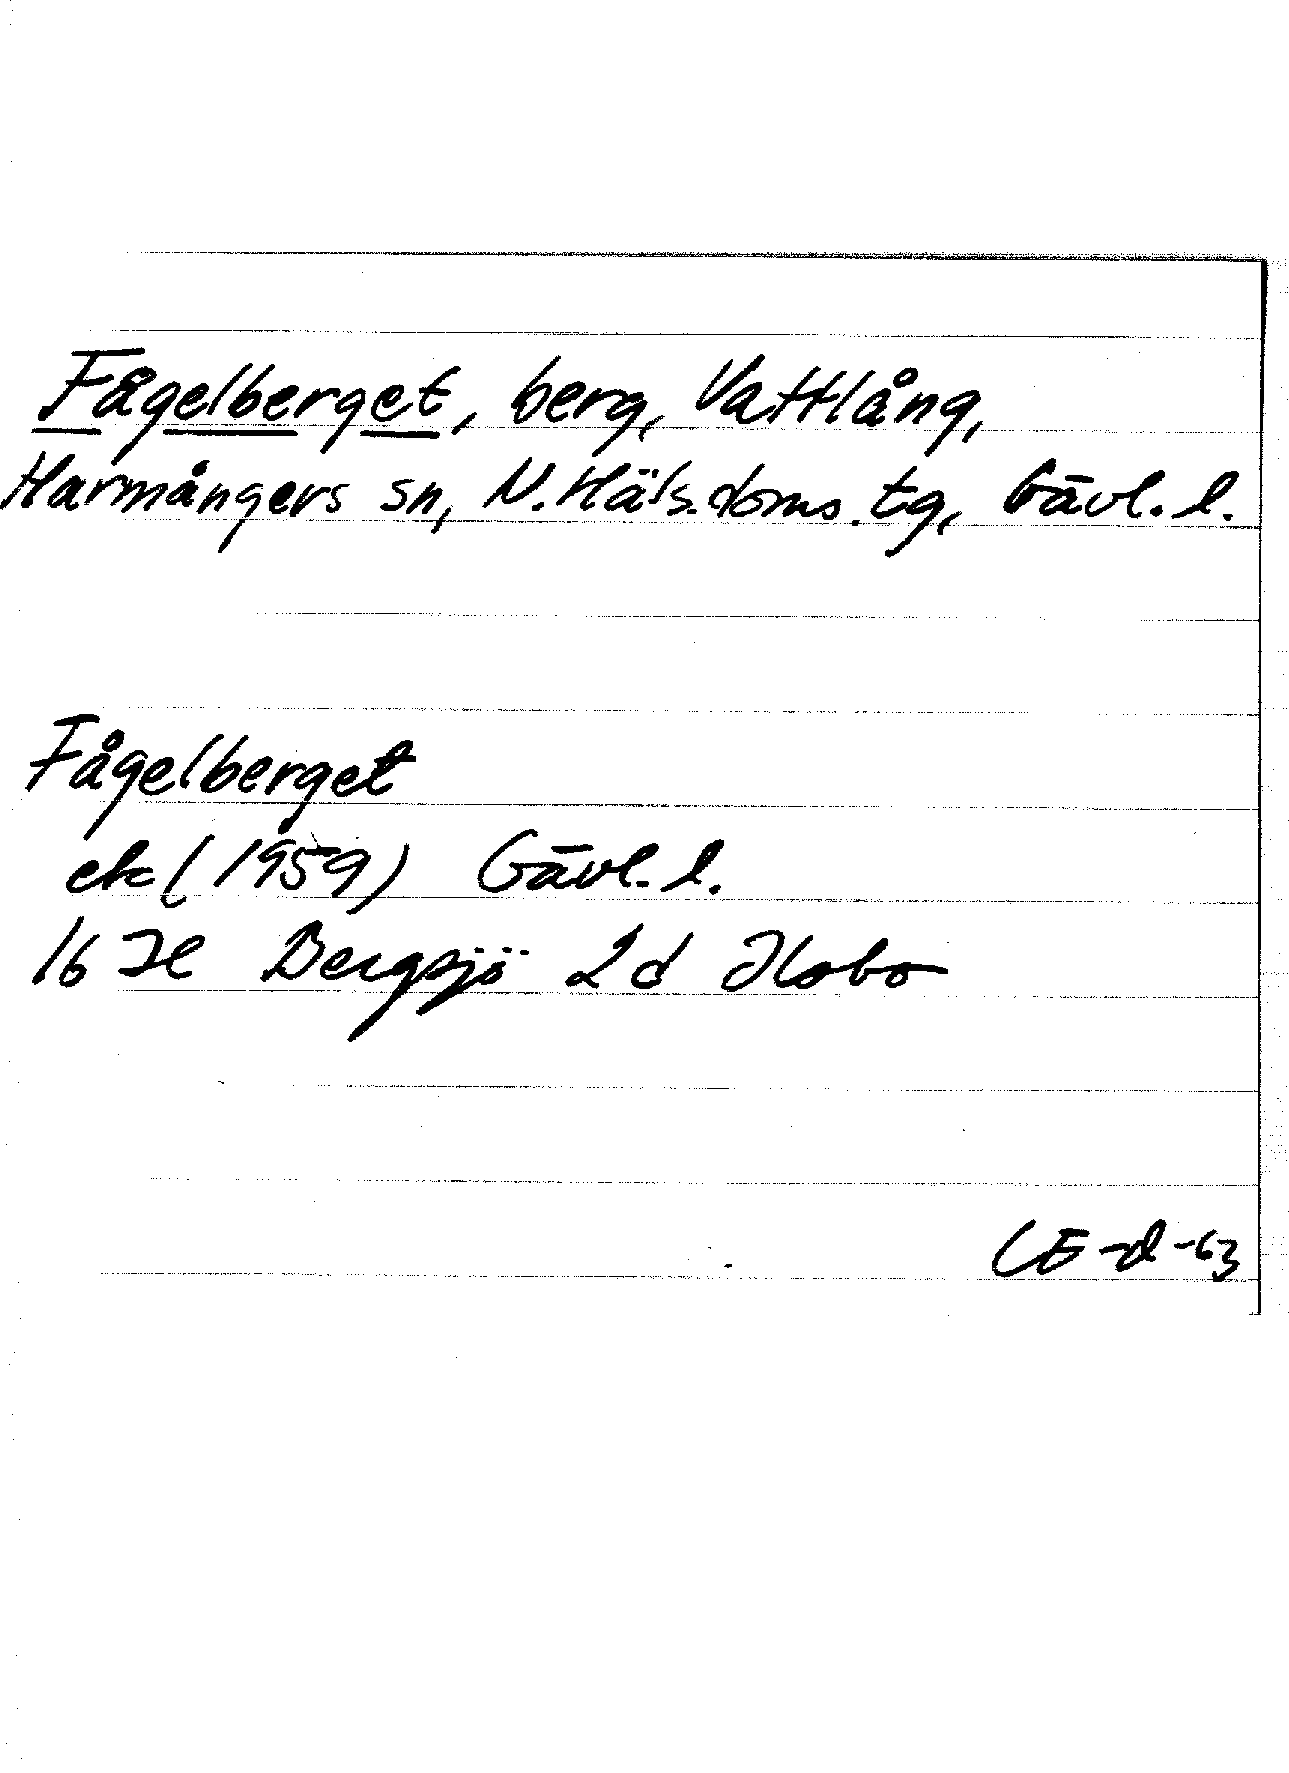 Fågelberget, berg, Vattlång,
Harmångers sn, N. Häls. doms. tg, Gävl. l.
Fågelberget
ek (1959) Gävl. l.
16 H Bergsjö 2d Ilsbo
CE-d-63